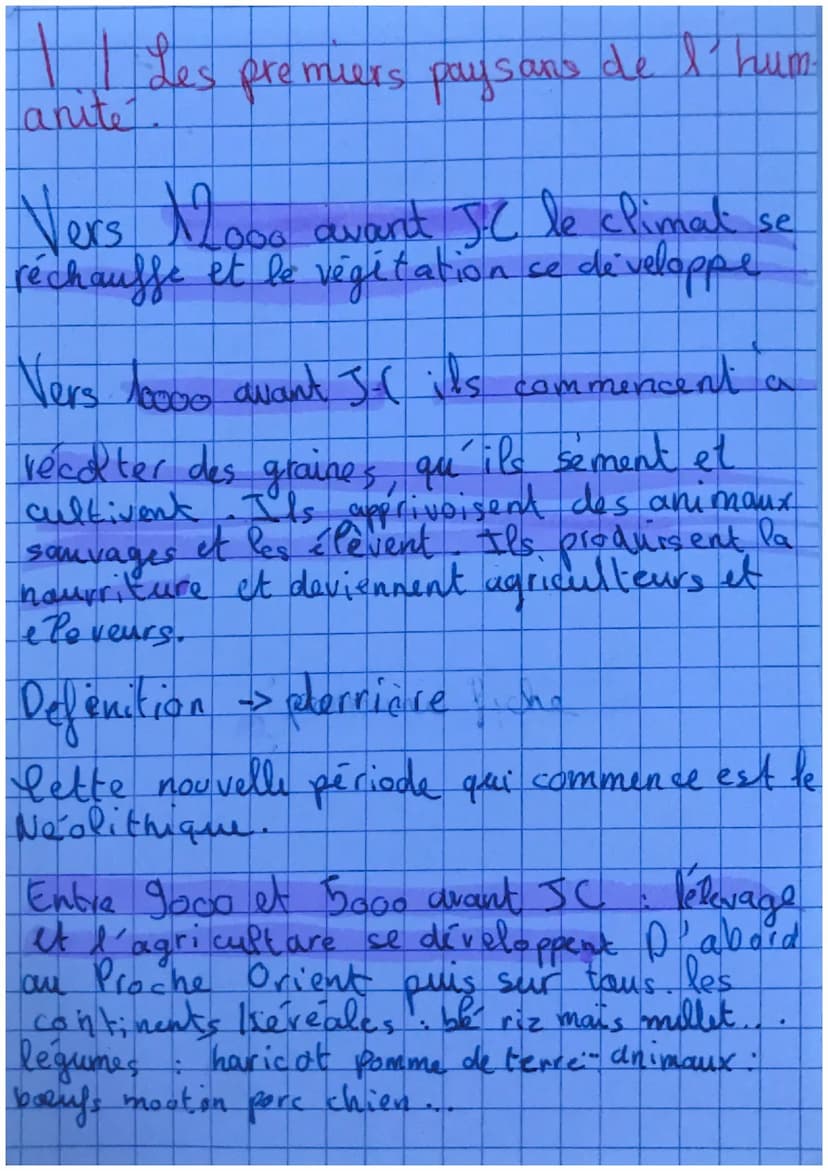 I I Les premiers paysans de l'hum-
anité.
Vers 12000 avant J-C le climat se
réchauffe et le végitation se développe
Vers 10000 avant J-C ils commencent à
récolter des graines, qu'ils sèment et
cultivent. Ils apprivoisent des animaux
sauvages et les élèvent. Ils produisent la
nourriture et deviennent agriculteurs et
eleveurs.
Definition -> derrière fiche
Cette nouvelle période qui commence est le
Néolithique.
Entre 9000 et 5000 avant JC : l'élevage
et l'agriculture se développent D'abord
au Proche Orient puis sur tous les
continents céréales : blé riz maïs millet...
légumes : haricot pomme de terre - animaux :
boeufs mooton porc chien ...